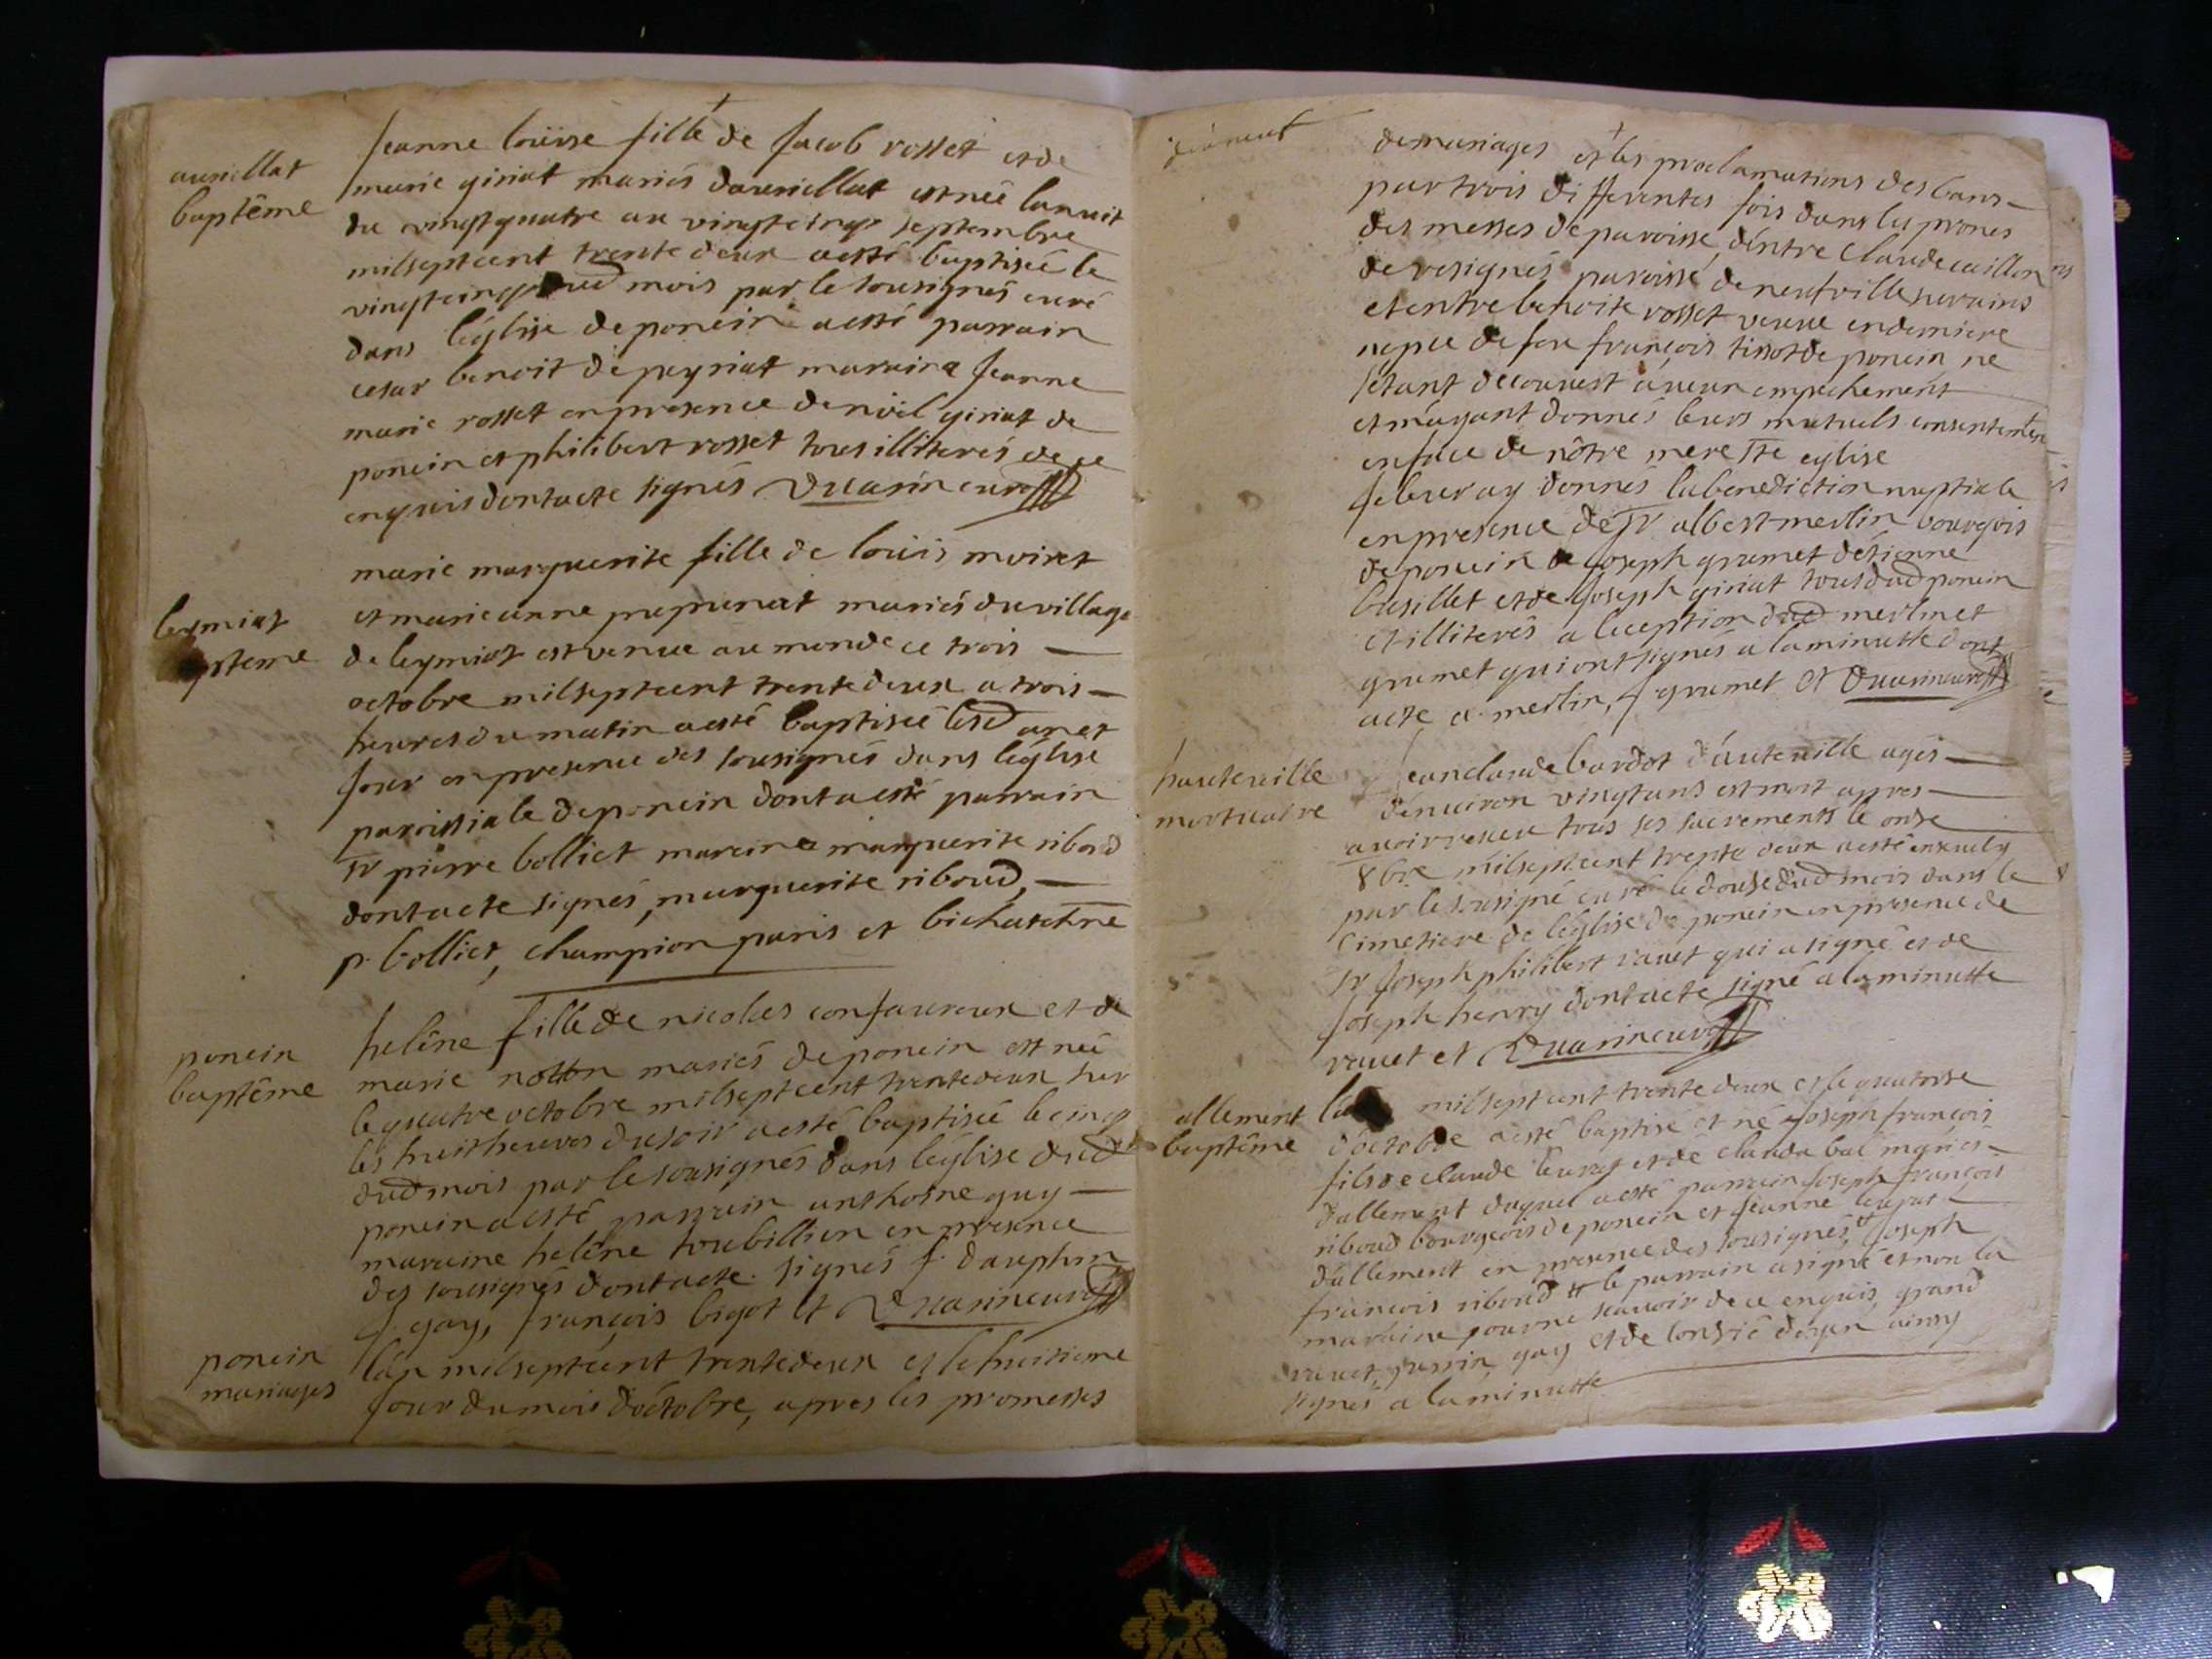 avrillat
baptême
Jeanne loüise fille de Jacob rosset et de
marie giriat mariés davrillat est née la nuit
du vingtquatre au vingtcinq septembre
milseptcent trente deux a esté baptisée le
vingtcinq dud mois par le sousignés curé
dans léglise de poncin a esté parrain
cesar benoit de peyriat maraine Jeanne
marie rosset en presence de nöel giriat de
poncin et philibert rosset tous illiterés de ce
enquis dont acte signés Duarin curé
leymiat
pteme
marie marguerite fille de loüis moiret
et marie anne mariés du village
de leymiat est venue au monde ce trois
octobre milseptcent trente deux a trois
heures du matin a esté baptisée lesd an et
Jour en presence des sousignés dans léglise
paroissiale de poncin dont a esté parrain
sr pierre bolliet maraine marguerite riboud
dont acte signés, marguerite riboud,
p. bolliet, champion paris et
poncin
baptême
helêne fille de nicolas confavreux et de
marie notton mariés de poncin est née
le quatre octobre milseptcent trente deux sur
les huit heures du soir a esté baptisée le cinq
dud mois par le sousignés dans léglise dud
poncin a esté parrain anthoine guy
maraine helêne toubillion en presence
des sousignés dont acte. signés f. dauphin
J. gay, françois bigot et Duarin curé
poncin
mariages
lán milseptcent trente deux et le huitieme
Jour du mois dóctobre, apres les promesses
de mariages et les proclamations des bans
par trois differentes fois dans les prones
des messes de paroisse, déntre Claude caillon
de resignés paroisse de neufville sur ains
et entre benoite rosset veuve en derniere
nopce de feu françois tissot de poncin ne
sétant découvert aucun empechement
et m'ayant donnés leurs mutuels consentemten
en face de nôtre mere ste eglise
Je leur ay donnés la benediction nuptiale
en presence de sr albert merlin bourgois
de poncin de Joseph grumet détienne
basillet et de Joseph giriat tous dud poncin
et illiterés a lexception dud merlin et
grumet qui ont signés a la minutte dont
acte a. merlin, J. grumet et Duarin curé
hauteville
mortuaire
Jean claude bardot d'auteville agés
denviron vingt ans est mort appres
avoir receu tous ses sacrements le onse
8bre milseptcent trente deux a esté
par le sousigné curé le douse dud mois dans le
Cimetiere de léglise de poncin en presence de
sr Joseph philibert ravet qui a signé et de
Joseph henry dont acte signé a la minutte
ravet et Duarin curé
allement
baptême
milseptcent trente deux et le quatorse
d'octobre a esté baptisé et né Joseph françois
fils de claude et de claude mariés
dallement duquel a esté parrain Joseph françois
riboud bourgeois de poncin et Jeanne
dallement en presence des sousignés, Joseph
francois riboud le parrain a signé et non la
maraine pour ne scauoir de ce enquis, grand
ravet, gay et de
signés a la minutte